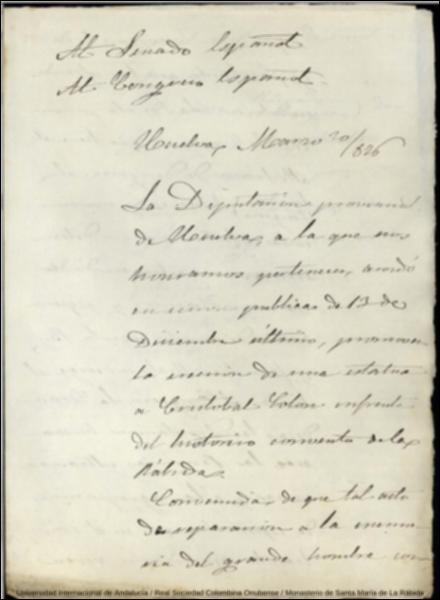 Al Senado Español
Al Congreso Español
Huelva, Marzo 20/826
La Diputación provincial
de Huelva, a la que nos
honramos pertenecer, acordó
en sesión publica de 13 de
Diciembre último, promover
la erección de una estatua
a Cristobal Colon enfrente
del historico convento de la
Rábida.
Convencida de que tal acto
de reparación a la memo-
ria del grande hombre con
Universidad Internacional de Andalucía / Real Sociedad Colombina Onubense / Monasterio de Santa María de La Rábida